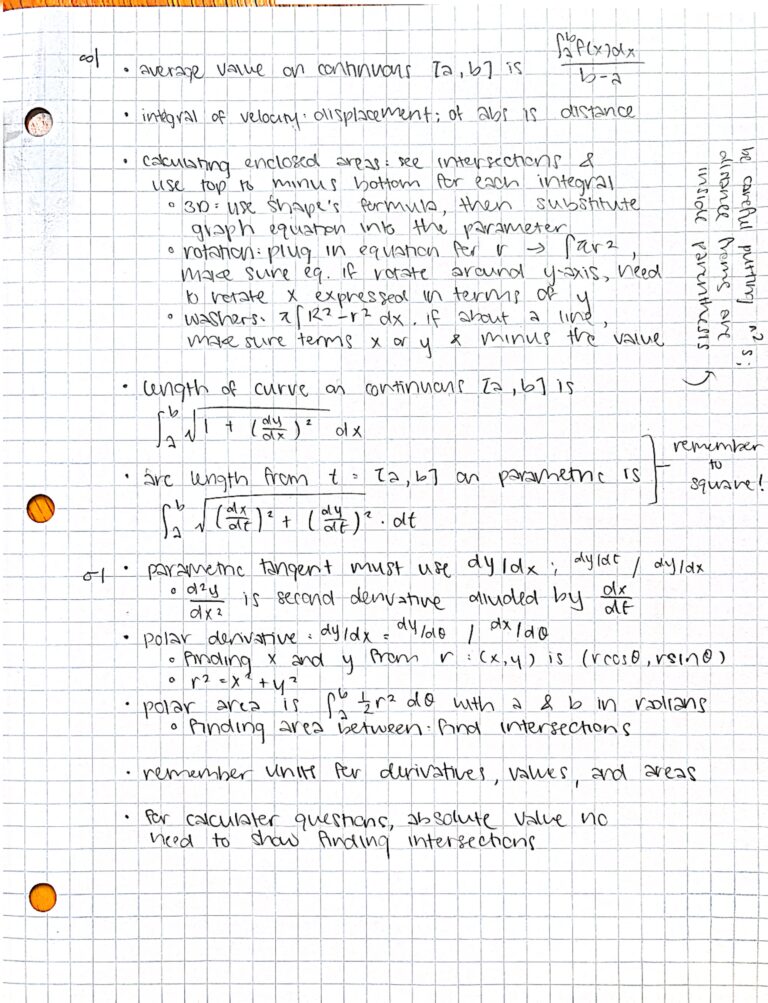 ∞|
• average value on continuous [a, b] is ∫ₐᵇ f(x)dx / b-a
• integral of velocity: displacement; of abs is distance
• calculating enclosed areas: see intersections &
use top to minus bottom for each integral
° 3D: use shape's formula, then substitute
graph equation into the parameter
° rotation: plug in equation for r → ∫πr²,
make sure eq. if rotate around y-axis, need
to rotate x expressed in terms of y
° washers: π∫R²-r² dx. if about a line,
make sure terms x or y & minus the value
be careful putting ^2's:
distance terms are
inside parenthesis
• length of curve on continuous [a, b] is
∫ₐᵇ √(1 + (dy/dx)²) dx
• arc length from t = [a, b] on parametric is
∫ₐᵇ √((dx/dt)² + (dy/dt)²) · dt
remember
to
square!
• parametric tangent must use dy/dx ; dy/dt / dy/dx
° d²y/dx² is second derivative divided by dx/dt
• polar derivative: dy/dx = dy/dθ / dx/dθ
° finding x and y from r : (x,y) is (rcosθ, rsinθ)
° r² = x² + y²
• polar area is ∫ₐᵇ ½r² dθ with a & b in radians
° finding area between: find intersections
• remember units for derivatives, values, and areas
• for calculater questions, absolute value no
need to show finding intersections